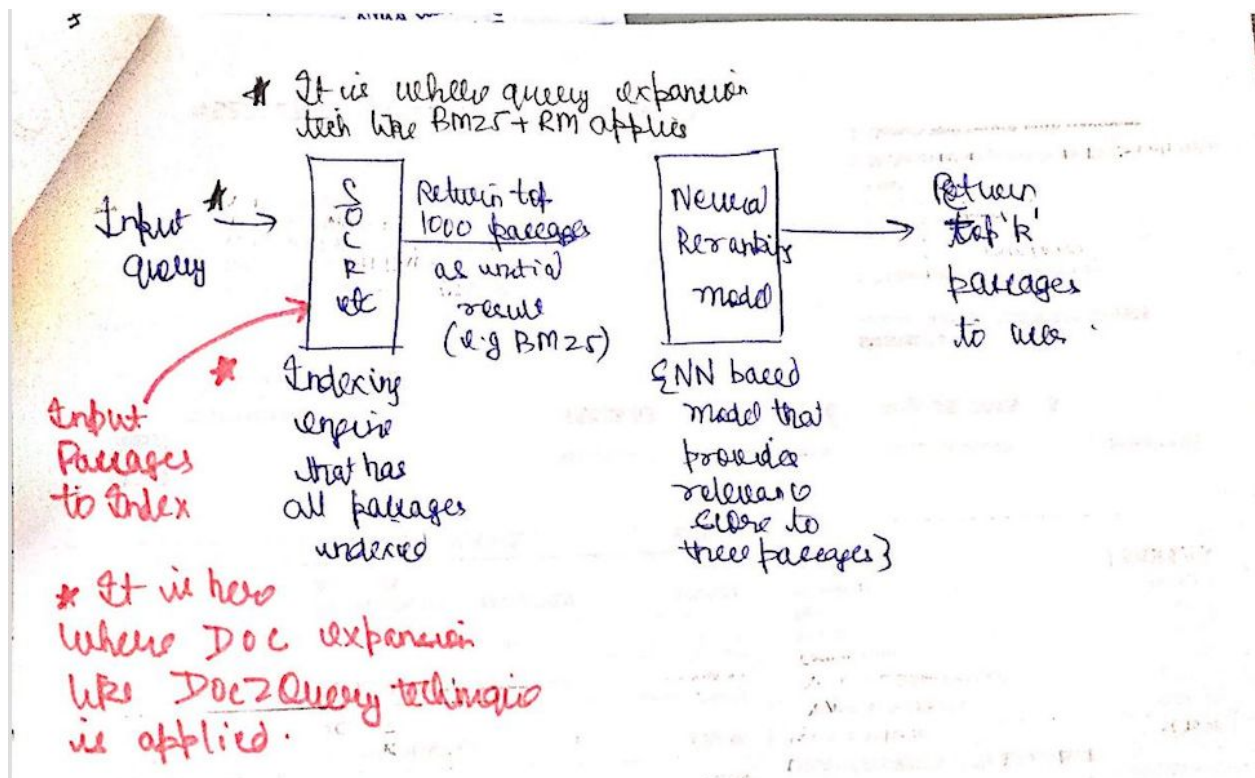 * It is where query expansion
tech like BM25 + RM applies
Input
query
S
O
L
R
etc
Return top
1000 passages
as initial
result
(e.g BM25)
Neural
Reranking
model
Return
top 'k'
passages
to user.
Input
Passages
to Index
*
Indexing
engine
that has
all passages
indexed
{NN based
model that
provides
relevance
score to
these passages}
* It is here
where DOC expansion
like Doc2Query
is applied.